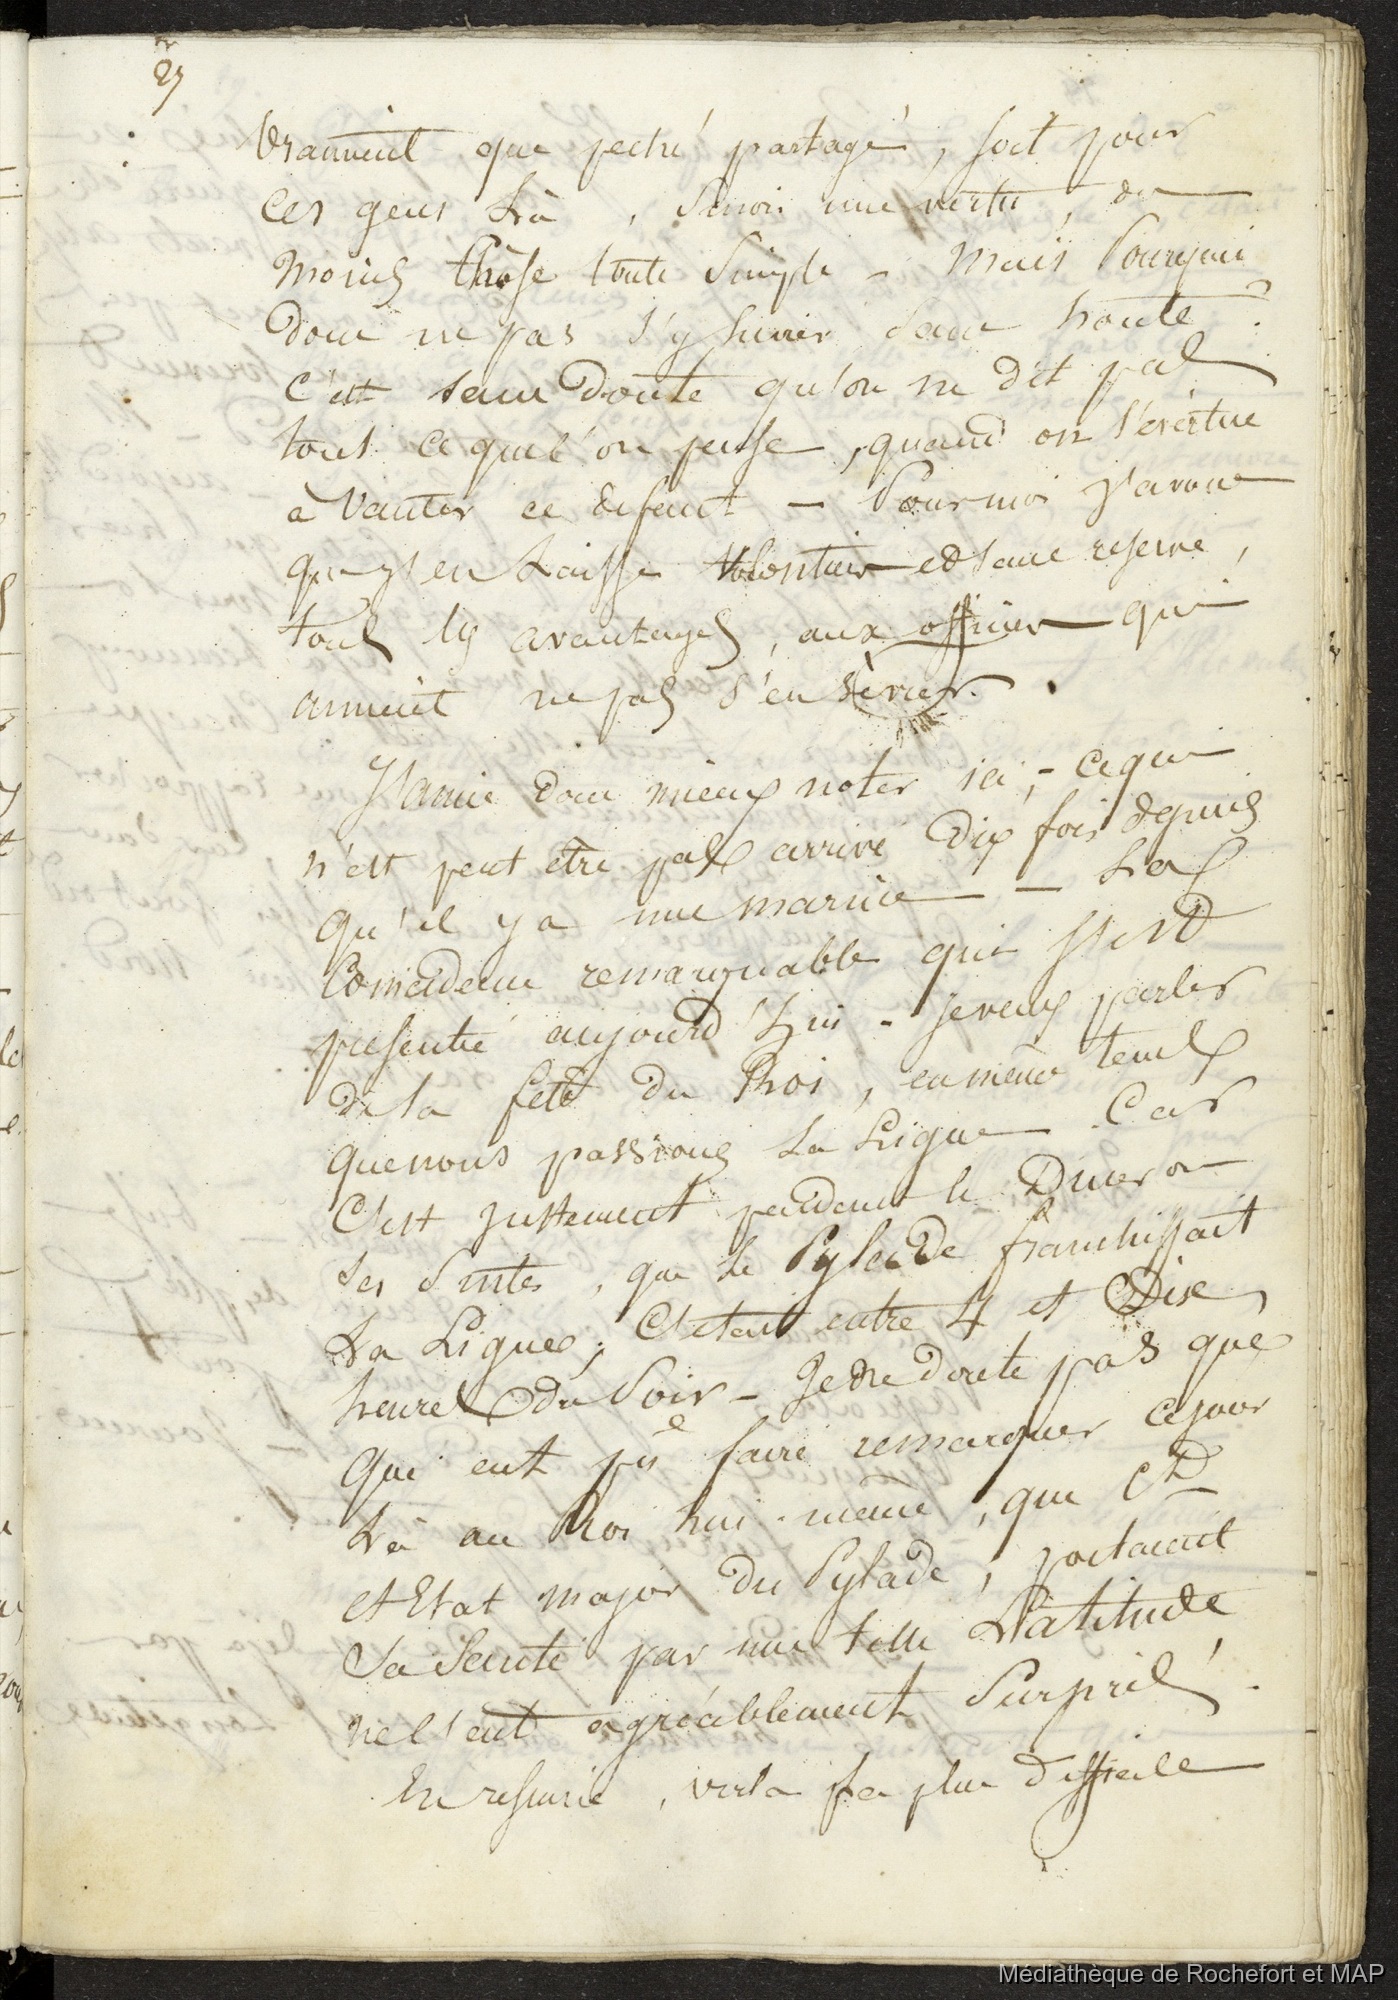 25
Vraiment que peché partagé, soit pour
ces gens Là, Sinon une vertu, du
Moins Chose toute Simple - Mais Pourquoi
donc ne pas s'y livrer sans honte?
C'est sans Doute qu'on ne dit pas
tout ce que l'on pense, quand on s'évertue
à Vanter ce défaut - Pour moi J'avoue
que J'en Laisse Volontier et sans reserve,
tous les avantages, aux officier qui
aiment ne pas s'en sèvrer.
J'aime donc mieux noter ici, - ce qui
n'est peut etre pas arrivé Dix fois depuis
qu'il y a une marine — La
Coincidence remarquable qui s'est
presenté aujourd'hui - Je veux parler
de la fete du Roi, en même tems
que nous passions La Ligne. Car
C'est justement pendant le Diner ou
Ses Suites, que Le Pylade franchissait
La Ligne; C'etait entre 4 et Dix
heures du Soir - Je ne doute pas que
qui eut pu faire remarquer ce jour
Là au Roi Lui-même, que Ct
et Etat major du Pylade, portaient
Sa Santé par une telle Latitude
ne l'eut agréablement Surpris.
En resumé, voila la plus difficile
Médiathèque de Rochefort et MAP